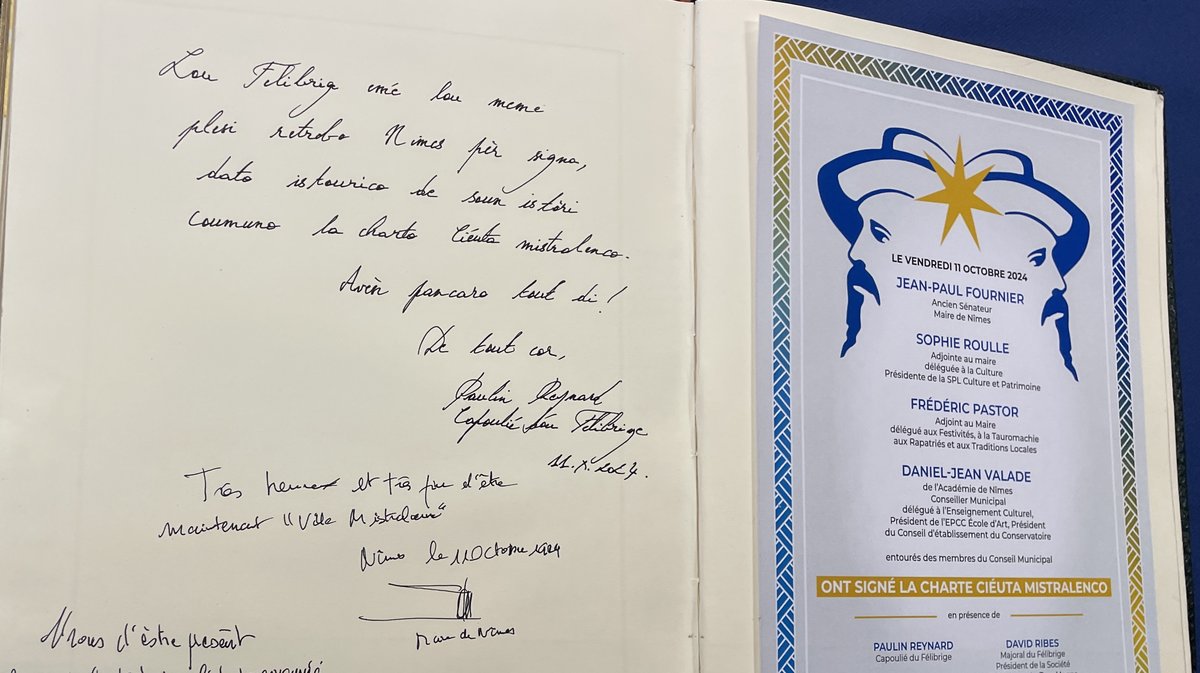 Lou Felibrige emé lou meme
plesi retrobo Nimes pèr signa,
dato istourico de soun istòri
coumuno la charto Ciéuta mistralenco.
Avèn pancaro tout di !
De tout cor,
Paulin Reynard
Capoulié dóu Felibrige
11.X.2024.
Très heureux et très fier d'être
maintenant "Ville Mistralienne"
Nîmes le 11 Octobre
Maire de Nîmes
d'être présent
LE VENDREDI 11 OCTOBRE 2024
JEAN-PAUL FOURNIER
Ancien Sénateur
Maire de Nîmes
SOPHIE ROULLE
Adjointe au maire
déléguée à la Culture
Présidente de la SPL Culture et Patrimoine
FRÉDÉRIC PASTOR
Adjoint au Maire
délégué aux Festivités, à la Tauromachie
aux Rapatriés et aux Traditions Locales
DANIEL-JEAN VALADE
de l'Académie de Nîmes
Conseiller Municipal
délégué à l'Enseignement Culturel,
Président de l'EPCC École d'Art, Président
du Conseil d'établissement du Conservatoire
entourés des membres du Conseil Municipal
ONT SIGNÉ LA CHARTE CIÉUTA MISTRALENCO
en présence de
PAULIN REYNARD
Capoulié du Félibrige
DAVID RIBES
Majoral du Félibrige
Président de la Société